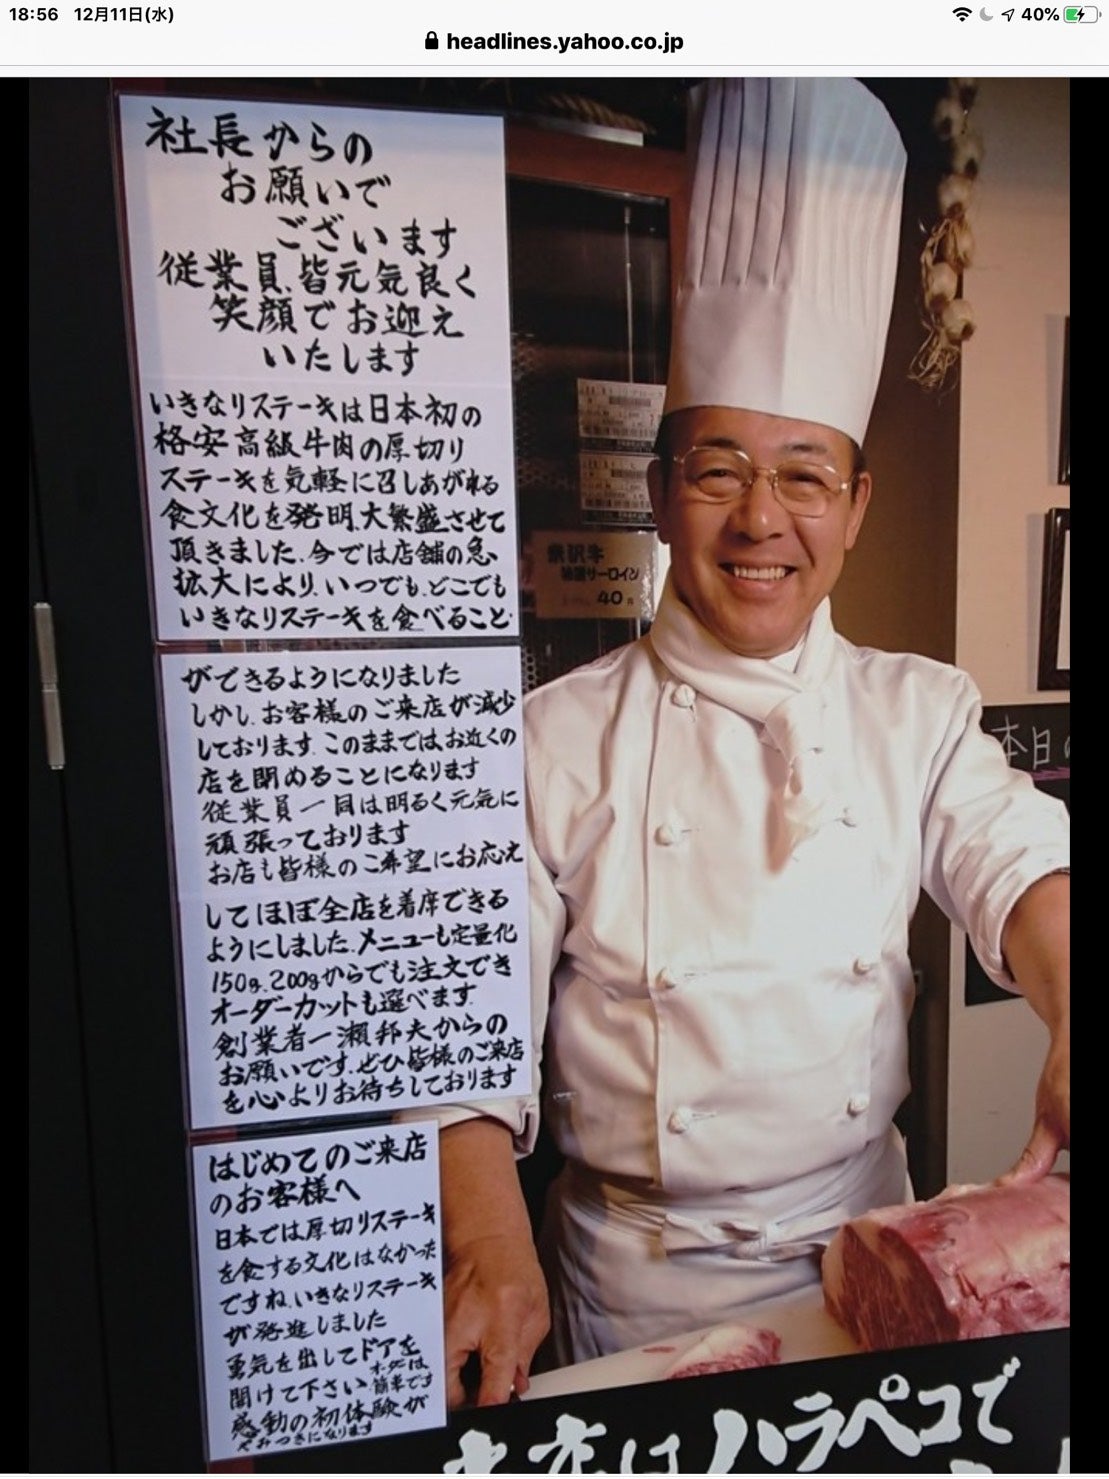 18:56 12月11日(水)
40%
headlines.yahoo.co.jp
社長からの
お願いで
ございます
従業員、皆元気良く
笑顔でお迎え
いたします
いきなりステーキは日本初の
格安高級牛肉の厚切り
ステーキを気軽に召しあがれる
食文化を発明、大繁盛させて
頂きました、今では店舗の急
拡大により、いつでも、どこでも
いきなりステーキを食べること
ができるようになりました
しかし、お客様のご来店が減少
しております、このままではお近くの
店を閉めることになります
従業員一同は明るく元気に
頑張っております
お店も皆様のご希望にお応え
してほぼ全店を着席できる
ようにしました、メニューも定量化
150g、200gからでも注文でき
オーダーカットも選べます、
創業者一瀬邦夫からの
お願いです、ぜひ皆様のご来店
を心よりお待ちしております
はじめてのご来店
のお客様へ
日本では厚切りステーキ
を食する文化はなかった
ですね、いきなりステーキ
が発進しました
勇気を出してドアを
開けて下さい、オーダーは簡単です
感動の初体験が
やみつきになります
米沢牛
サーロイン
40円
本日の
はハラペコで